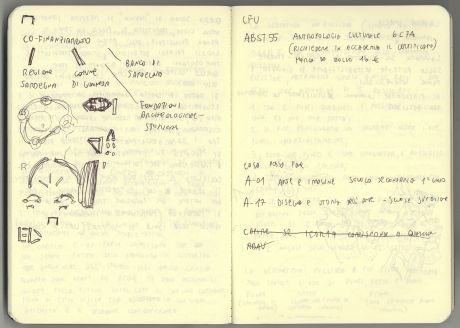 CO-FINANZIAMENTO
REGIONE
SARDEGNA
COMUNE
DI
BANCO DI
SARDEGNA
FONDAZIONI
CFU
ABST55 ANTROPOLOGIA CULTURALE 6 CFA
(RICHIEDERE IN ACCADEMIA IL CERTIFICATO)
MARCA DA BOLLO 16 €
COSA PUOI FAR
A-01 ARTE E IMMAGINE SCUOLA SECONDARIA 1° GRADO
A-17 DISEGNO E STORIA DELL'ARTE - SCUOLE SUPERIORI
CAPIRE SE ICONTA CORRISPONDE A QUALCHE
ABAV